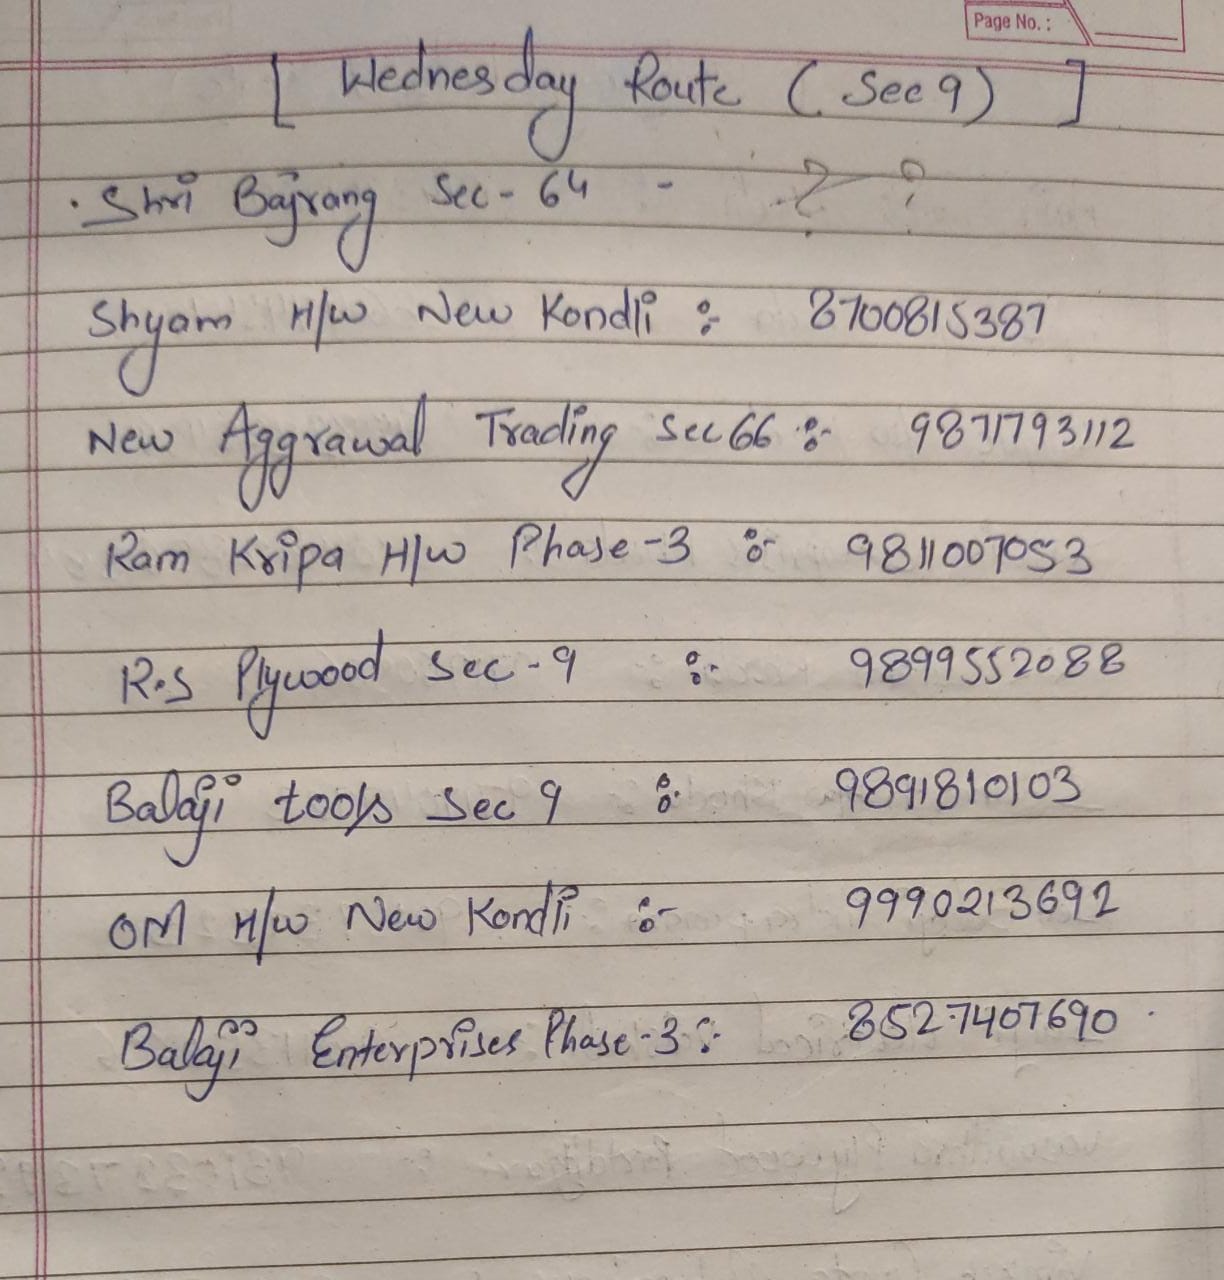 Page No. :
[ Wednesday Route ( Sec 9) ]
. Shri Bajrang Sec - 64 - ? ?
Shyam H/w New Kondli :- 8700815387
New Aggrawal Trading Sec 66 :- 9871793112
Ram Kripa H/w Phase-3 :- 9811007053
R.S Plywood Sec-9 :- 9899552088
Balaji tools Sec 9 :- 9891810103
OM H/w New Kondli :- 9990213692
Balaji Enterprises Phase-3 :- 8527407690